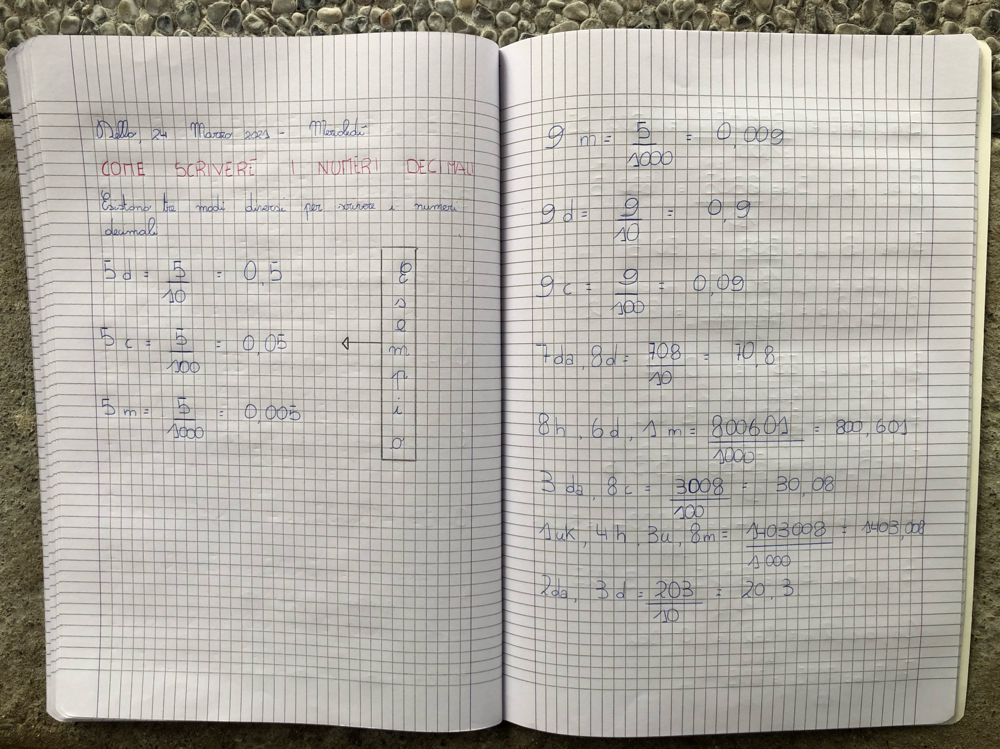 24 Marzo 2021 - Mercoledì
COME SCRIVERE I NUMERI DECIMALI
Esistono tre modi diversi per scrivere i numeri
decimali
5d = 5/10 = 0,5
5c = 5/100 = 0,05
5m = 5/1000 = 0,005
Esempio
9m = 5/1000 = 0,009
9d = 9/10 = 0,9
9c = 9/100 = 0,09
7da, 8d = 708/10 = 70,8
8h, 6d, 1m = 800601/1000 = 800,601
3da, 8c = 3008/100 = 30,08
1uk, 4h, 3u, 8m = 1403008/1000 = 1403,008
2da, 3d = 203/10 = 20,3